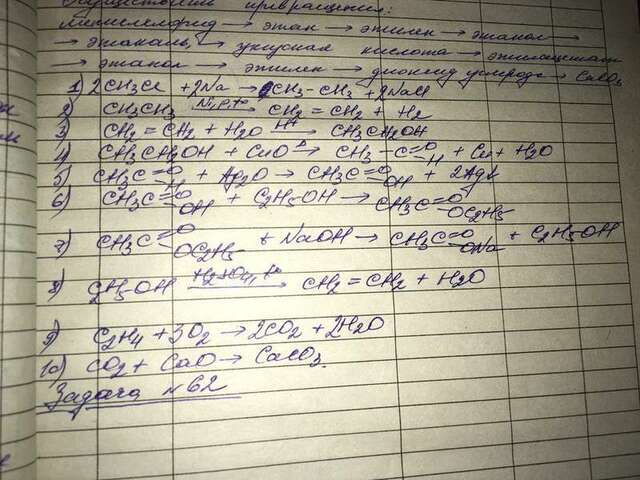 Осуществить превращения:
Метилхлорид → этан → этилен → этанол →
→ этаналь, → уксусная кислота → этилацетат
→ этанол → этилен → диоксид углерода → CaCO3
1) 2CH3Cl + 2Na → CH3-CH3 + 2NaCl
2) CH3CH3 Ni,p,t° → CH2=CH2 + H2
3) CH2=CH2 + H2O H+ → CH3CH2OH
4) CH3CH2OH + CuO → CH3-C=O H + Cu + H2O
5) CH3C=O H + Ag2O → CH3C=O OH + 2Ag↓
6) CH3C=O OH + C2H5OH → CH3C=O OC2H5
7) CH3C=O OC2H5 + NaOH → CH3C=O ONa + C2H5OH
8) C2H5OH H2SO4, t° → CH2=CH2 + H2O
9) C2H4 + 3O2 → 2CO2 + 2H2O
10) CO2 + CaO → CaCO3.
Задача №62